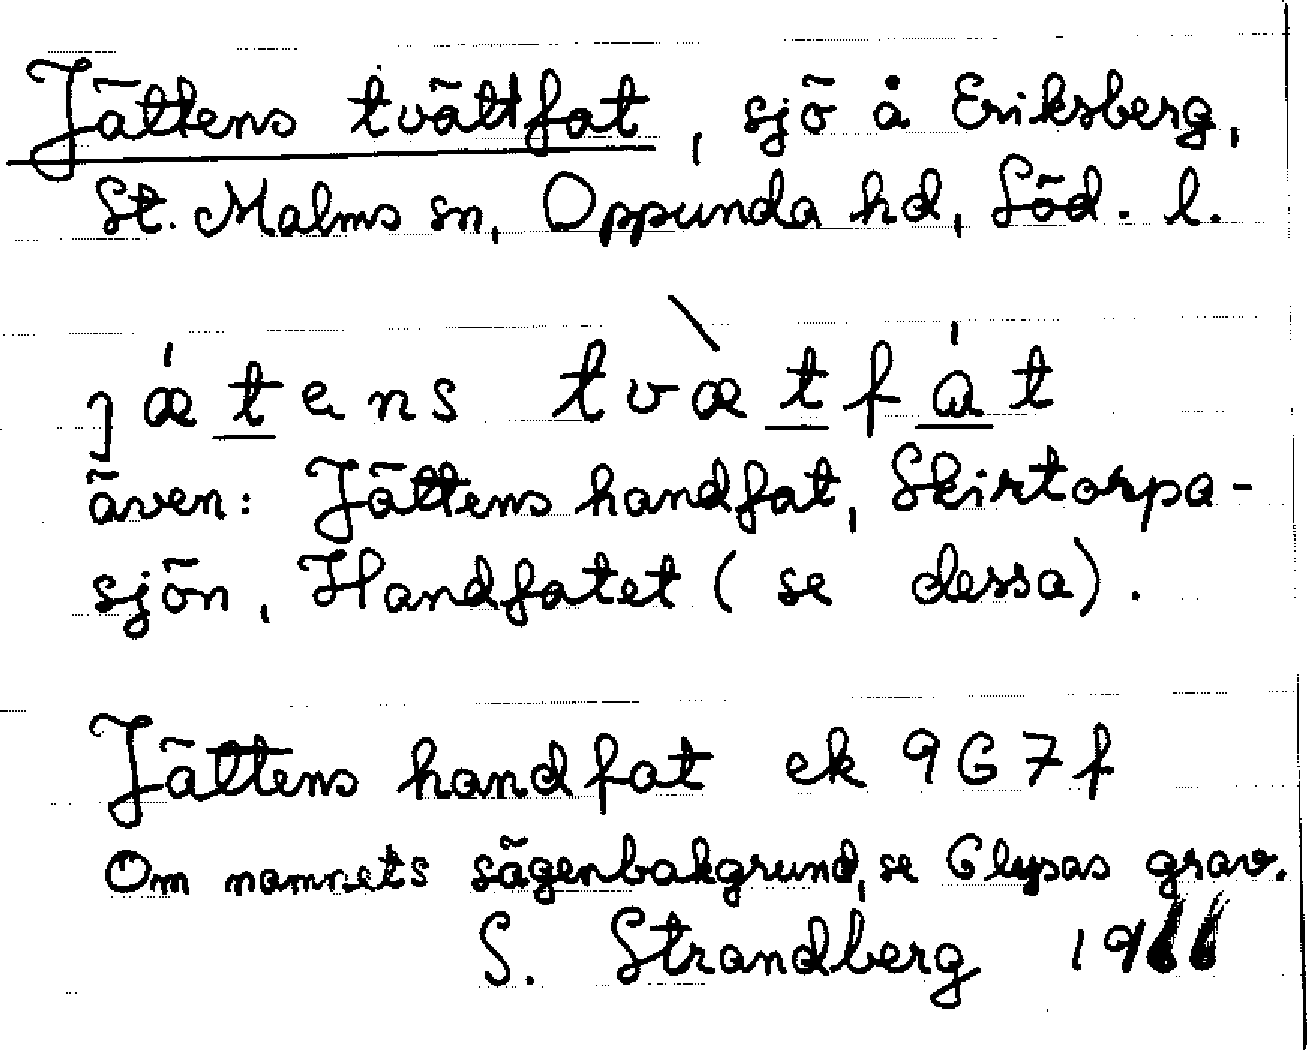 Jättens tvättfat, sjö å Eriksberg,
St. Malms sn, Oppunda hd, Söd. l.
jǽtens tvæ̀tfát
även: Jättens handfat, Skirtorpa-
sjön, Handfatet (se dessa).
Jättens handfat ek 9G7f
Om namnets sägenbakgrund, se Glysas grav.
S. Strandberg 1966